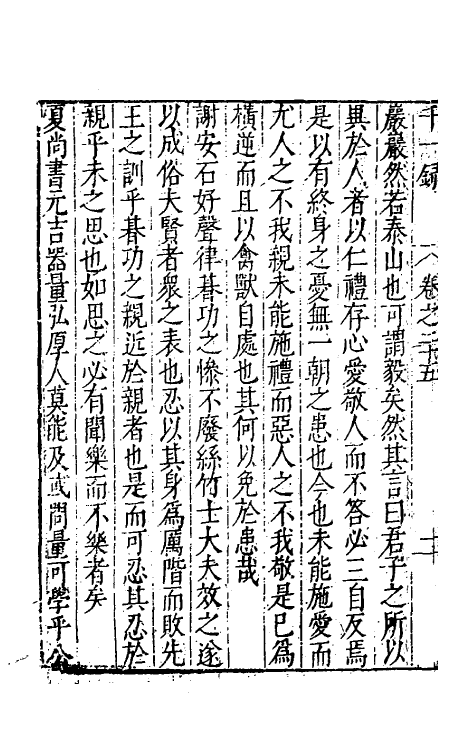 千一錄 卷之二十五 十
巖巖然若泰山也可謂毅矣然其言曰君子之所以
異於人者以仁禮存心愛敬人而不答必三自反焉
是以有終身之憂無一朝之患也今也未能施愛而
尤人之不我親未能施禮而惡人之不我敬是已為
橫逆而且以禽獸自處也其何以免於患哉
謝安石好聲律朞功之慘不廢絲竹士大夫效之遂
以成俗夫賢者衆之表也忍以其身為厲階而敗先
王之訓乎朞功之親近於親者也是而可忍其忍於
親乎未之思也如思之必有聞樂而不樂者矣
夏尚書元吉器量弘厚人莫能及或問量可學乎公